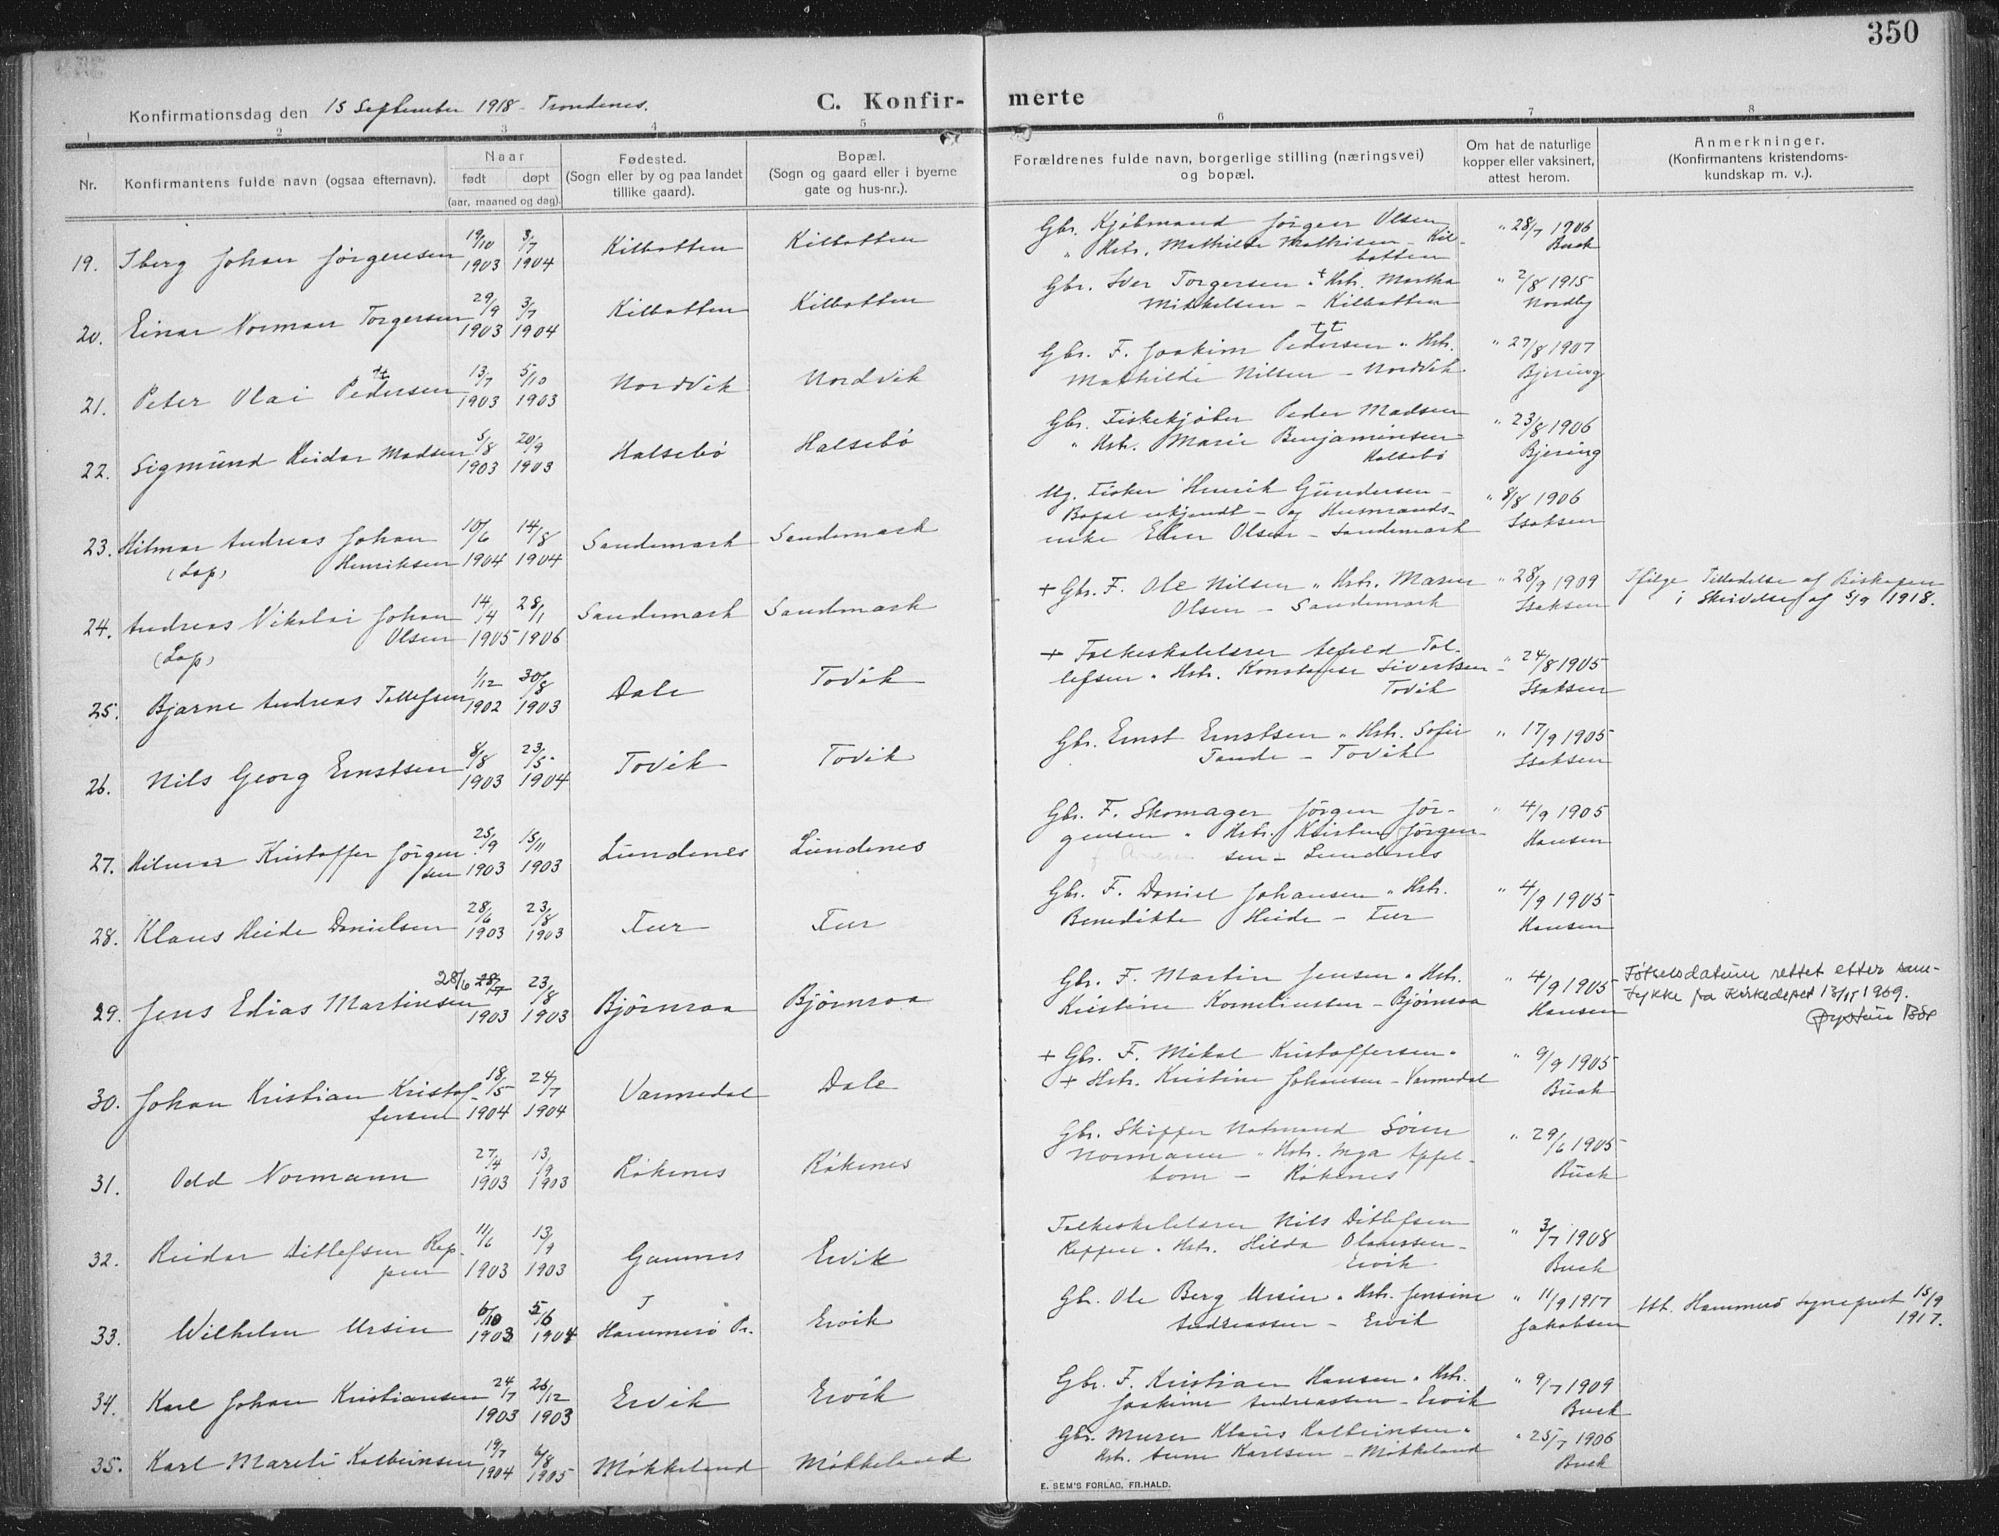 350
Konfirmationsdag den 15 September 1918 - Trondenes.
C. Konfir- merte
1 2 3 4 5 6 7 8
Nr.
Konfirmantens fulde navn (ogsaa efternavn).
Naar
født døpt
(aar, maaned og dag).
Fødested.
(Sogn eller by og paa landet
tillike gaard).
Bopæl.
(Sogn og gaard eller i byerne
gate og hus-nr.).
Forældrenes fulde navn, borgerlige stilling (næringsvei)
og bopæl.
Om hat de naturlige
kopper eller vaksinert,
attest herom.
Anmerkninger.
(Konfirmantens kristendoms-
kundskap m. v.).
19. Iberg Johan Jørgensen 19/10 1903 3/7 1904 Kilbotten Kilbotten
Gbr. Kjøbmand Jørgen Olsen
" Hstr. Mathilde Mathisen - Kil-
botten
" 28/7 1906
Buck
20. Einar Norman Torgersen 29/9 1903 3/7 1904 Kilbotten Kilbotten
Gbr. Iver Torgersen " Hstr. Martha
Mikkelsen - Kilbotten
" 2/8 1915
Nordby
21. Peter Olai Pedersen 13/7 1903 5/10 1903 Nordvik Nordvik
tt
Gbr. F. Joakim Pedersen " Hstr.
Mathilde Nilsen - Nordvik
" 27/8 1907
Bjering
22. Sigmund Reidar Madsen 5/8 1903 20/9 1903 Halsebø Halsebø
Gbr. Fiskekjøber Peder Madsen
" Hstr. Marie Benjaminsen -
Halsebø
" 23/8 1906
Bjering
23. Hilmar Andreas Johan 10/6 1904 14/8 1904 Sandemark Sandemark
(Lap) Henriksen
Ug. Fisker Henrik Gundersen -
Bopæl ukjendt - og Husmands-
enke Ellen Olsen - Sandemark
" 8/8 1906
Isaksen
24. Andreas Nikolai Johan 14/4 1905 28/1 1906 Sandemark Sandemark
Olsen
(Lap)
+ Gbr. F. Ole Nilsen " Hstr. Maren
Olsen - Sandemark
" 28/9 1909
Isaksen
Ifølge Tilladelse af Biskopen
i Skrivelse af 5/9 1918.
25. Bjarne Andreas Tollefsen 1/12 1902 30/8 1903 Dale Tovik
+ Folkeskolelærer Tol-
lefsen " Hstr. Konstanse Sivertsen -
Tovik
" 24/8 1905
Isaksen
26. Nils Georg Ernstsen 8/8 1903 23/5 1904 Tovik Tovik
Gbr. Ernst Ernstsen " Hstr. Sofie
Tande - Tovik
" 17/9 1905
Isaksen
27. Hilmar Kristoffer Jørgen- 25/9 1903 15/11 1903 Lundenes Lundenes
sen
Gbr. F. Skomager Jørgen Jør-
gensen " Hstr. Kristine Jørgen-
sen - Lundenes
" 4/9 1905
Hansen
28. Klaus Heide Danielsen 28/6 1903 23/8 1903 Fur Fur
Gbr. F. Daniel Johansen " Hstr.
Benedikte Heide - Fur
" 4/9 1905
Hansen
29. Jens Edias Martinsen 28/6 28/7 1903 23/8 1903 Bjørnraa Bjørnraa
Gbr. F. Martin Jensen " Hstr.
Kristine Korneliussen - Bjørnraa
" 4/9 1905
Hansen
Fødselsdatum rettet etter sam-
tykke fra Kirkedepet 13/11 1969.
Øystein Bø
30. Johan Kristian Kristof- 18/5 1904 24/7 1904 Varmedal Dale
fersen
+ Gbr. F. Mikal Kristoffersen "
+ Hstr. Kristine Johansen - Varmedal
" 9/9 1905
Buck
31. Odd Normann 27/4 1903 13/9 1903 Røkenes Røkenes
Gbr. Skipper Notmand Søren
Normann " Hstr. Inga Appel-
bom - Røkenes
" 29/6 1905
Buck
32. Reidar Ditlefsen Rep- 11/6 1903 13/9 1903 Gamnes Ervik
pen
Folkeskolelærer Nils Ditlefsen
Reppen " Hstr. Hilda Olaussen -
Ervik
" 3/7 1908
Buck
33. Wilhelm Ursin 6/10 1903 5/6 1904 Hammerø Pr. Ervik
Gbr. Ole Berg Ursin " Hstr. Jensine
Andreassen - Ervik
" 11/9 1917
Jakobsen
Att. Hammerø Sogneprest 15/9
1917.
34. Karl Johan Kristiansen 24/7 1903 26/12 1903 Ervik Ervik
Gbr. F. Kristian Hansen " Hstr.
Joakime Andreassen - Ervik
" 9/7 1909
Buck
35. Karl Mareli Kolbeinsen 19/7 1904 6/8 1905 Møkkeland Møkkeland
Gbr. Murer Klaus Kolbeinsen "
Hstr. Anne Karlsen - Møkkeland
" 25/7 1906
Buck
E. SEM'S FORLAG, FR.HALD.